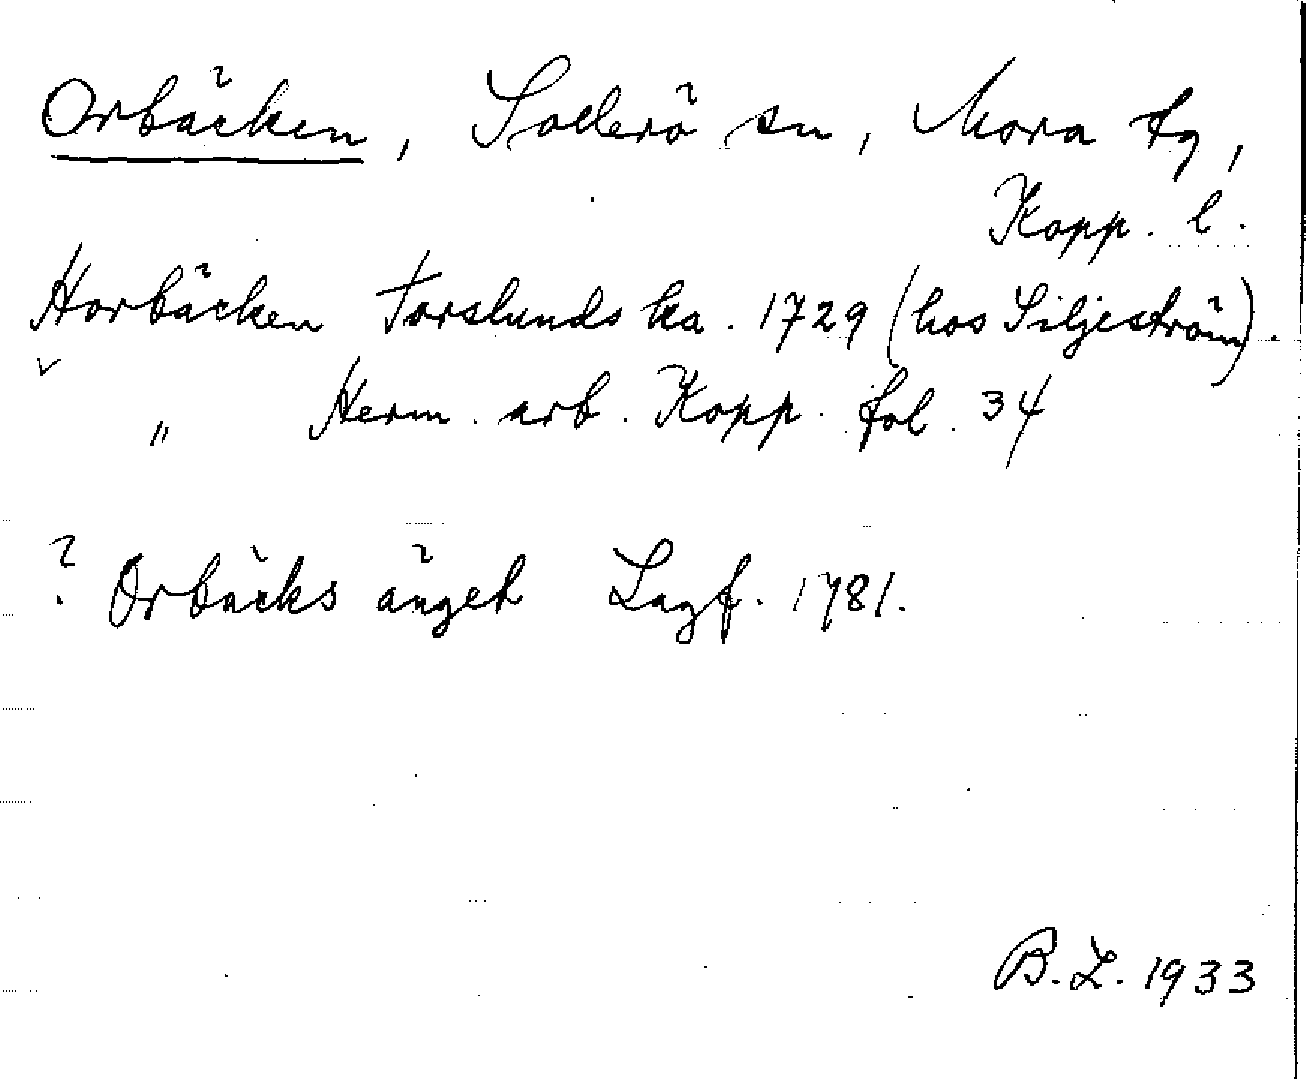 Orbäcken, Sollerö sn, Mora tg,
Kopp. l.
Horbäcken Forslunds ka. 1729 (hos Siljeström).
v
" Herm. arb. Kopp. fol. 34
? Orbäcks änget Lagf. 1781.
B.L. 1933